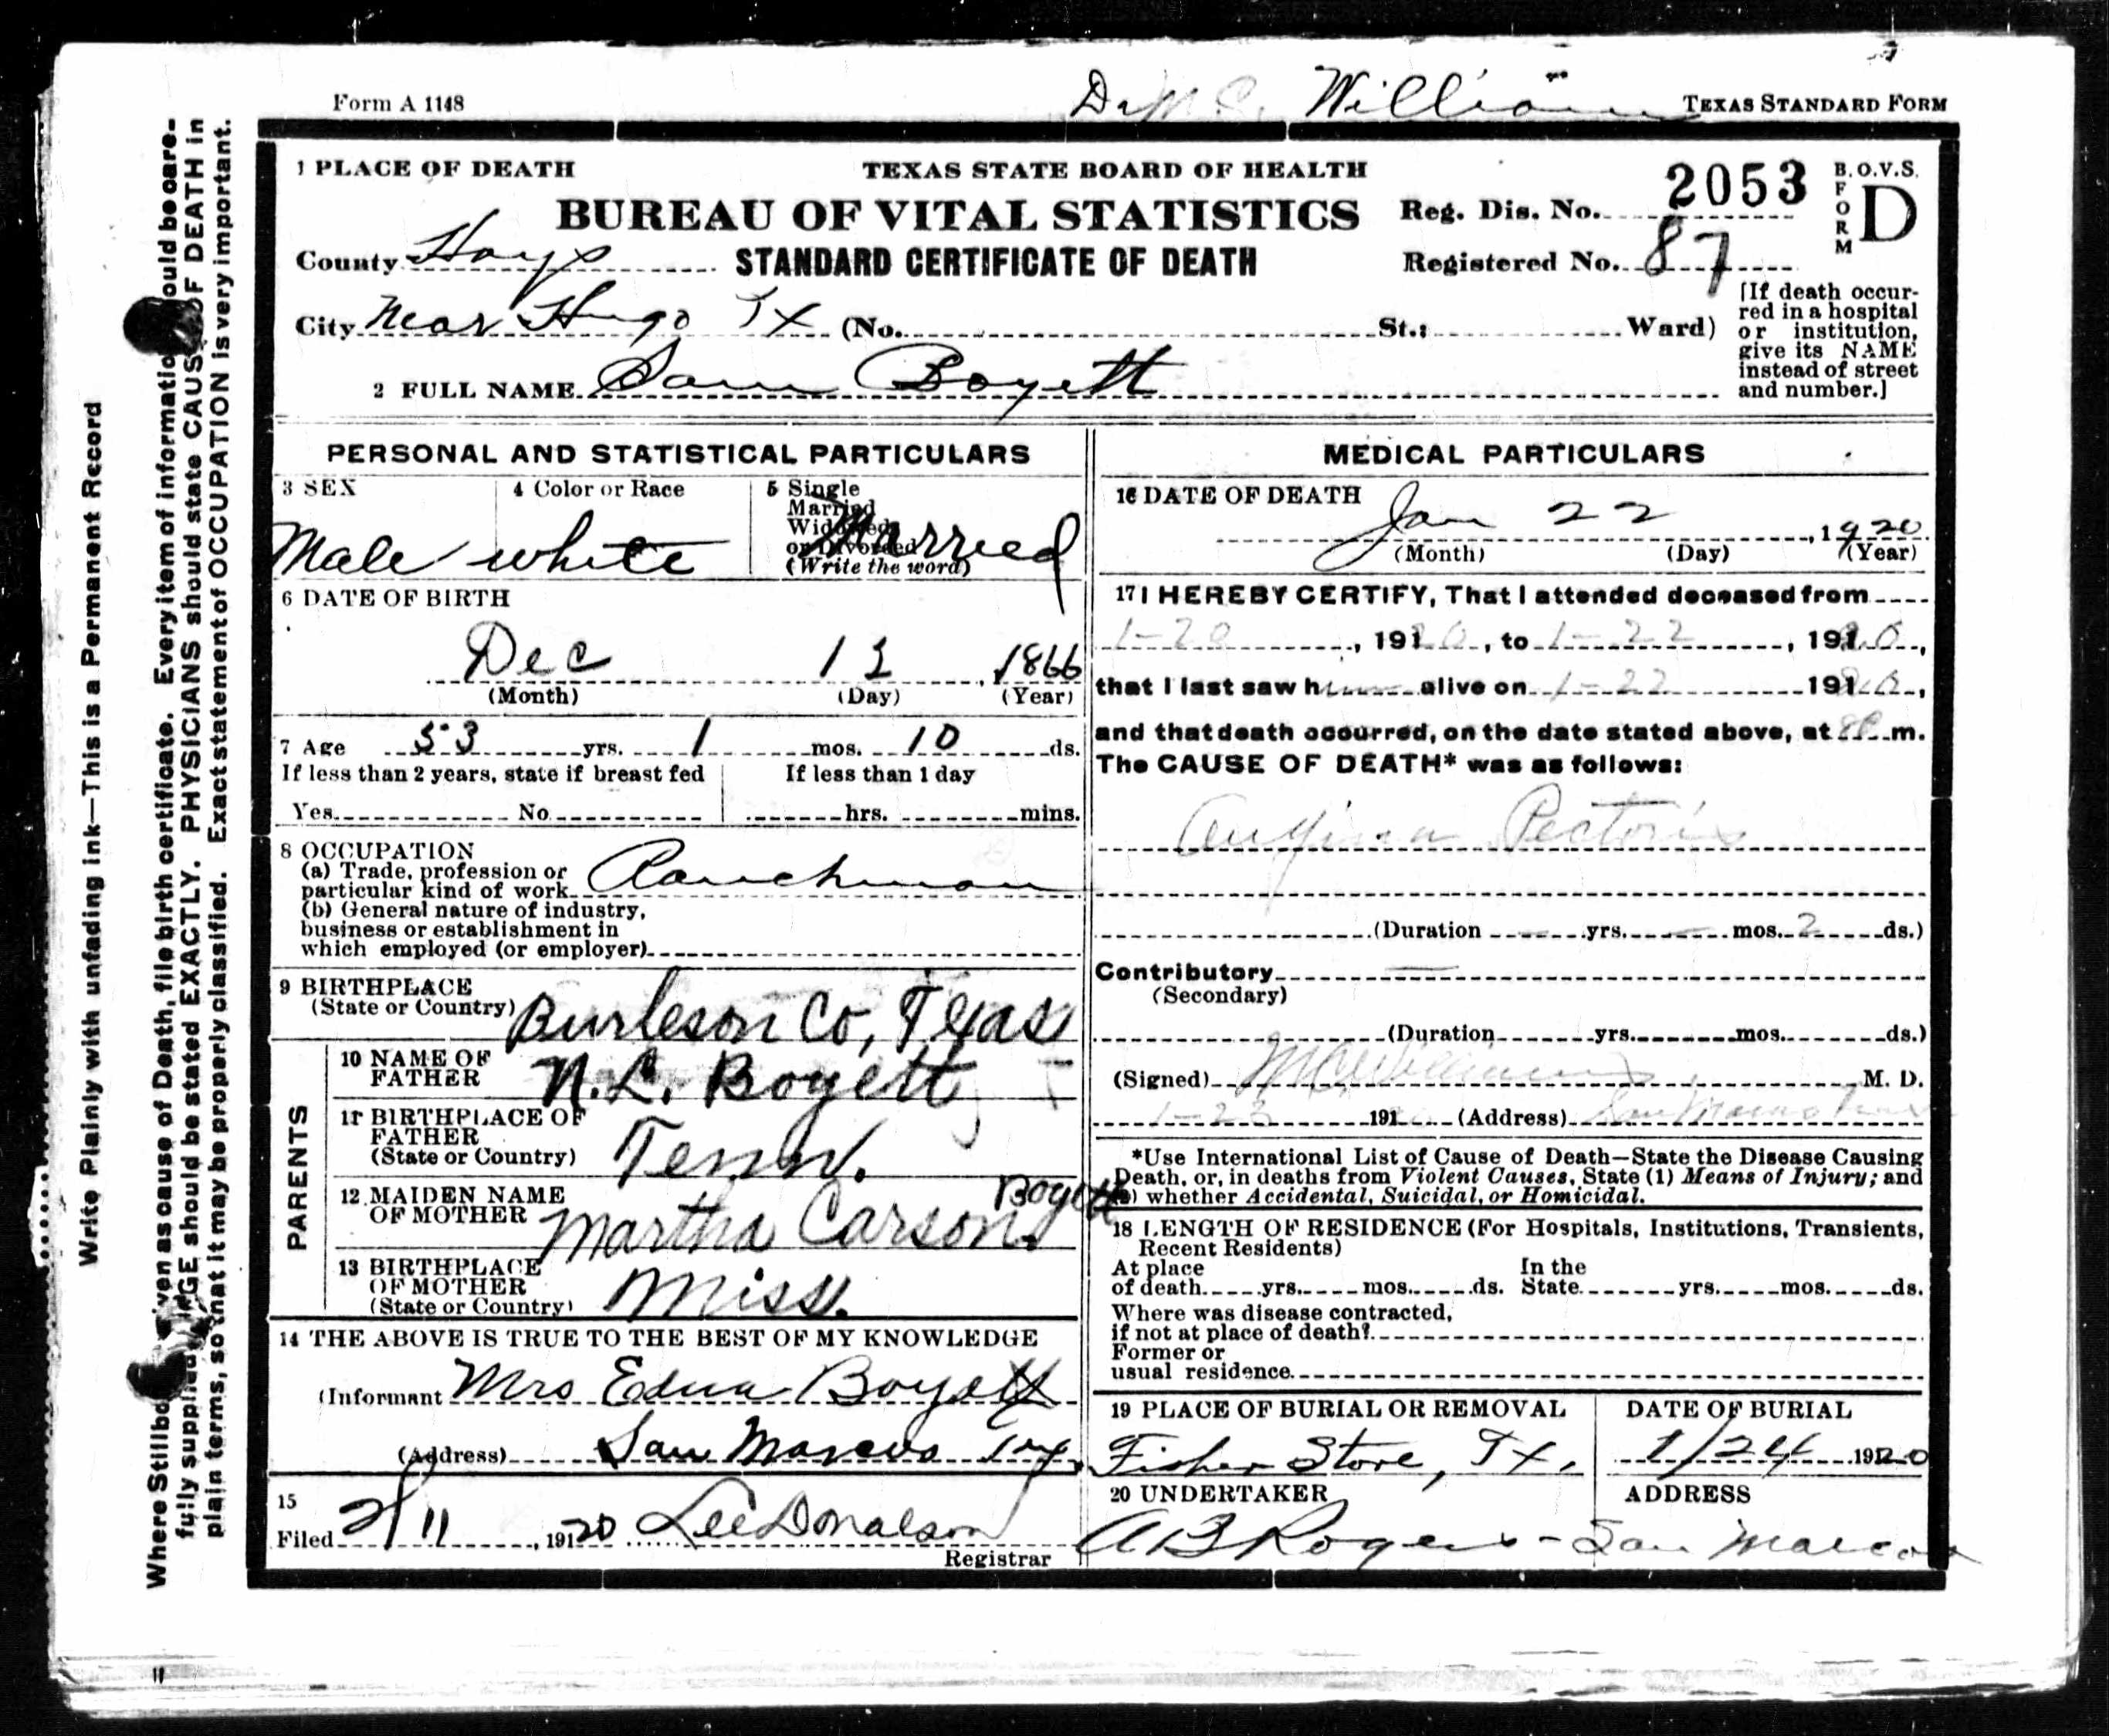 Form A 1148
Williams TEXAS STANDARD FORM
1 PLACE OF DEATH TEXAS STATE BOARD OF HEALTH
BUREAU OF VITAL STATISTICS
STANDARD CERTIFICATE OF DEATH
Reg. Dis. No. 2053
Registered No. 87
B.O.V.S. FORM D
County Hays
City Near Hugo Tx (No. St.; Ward)
[If death occur-
red in a hospital
or institution,
give its NAME
instead of street
and number.]
2 FULL NAME Sam Boyett
PERSONAL AND STATISTICAL PARTICULARS
3 SEX
Male
4 Color or Race
white
5 Single
Married
Widowed
or Divorced
(Write the word)
Married
6 DATE OF BIRTH
Dec 12, 1866
(Month) (Day) (Year)
7 Age 53 yrs. 1 mos. 10 ds.
If less than 2 years, state if breast fed
Yes No
If less than 1 day
hrs. mins.
8 OCCUPATION
(a) Trade, profession or
particular kind of work Ranchman
(b) General nature of industry,
business or establishment in
which employed (or employer)
9 BIRTHPLACE
(State or Country) Burleson Co, Texas
PARENTS
10 NAME OF
FATHER N. L. Boyett
11 BIRTHPLACE OF
FATHER
(State or Country) Tenn.
12 MAIDEN NAME
OF MOTHER Martha Carson Boyett
13 BIRTHPLACE
OF MOTHER
(State or Country) Miss.
14 THE ABOVE IS TRUE TO THE BEST OF MY KNOWLEDGE
(Informant Mrs Edna Boyett
(Address) San Marcos Tex.
15
Filed 2/11, 1920 Lee Donalson
Registrar
MEDICAL PARTICULARS
16 DATE OF DEATH
Jan 22, 1920
(Month) (Day) (Year)
17 I HEREBY CERTIFY, That I attended deceased from
1-20, 1920, to 1-22, 1920,
that I last saw him alive on 1-22 1920,
and that death occurred, on the date stated above, at 8P.m.
The CAUSE OF DEATH* was as follows:
Angina Pectoris
(Duration yrs. mos. 2 ds.)
Contributory
(Secondary)
(Duration yrs. mos. ds.)
(Signed) M C Williams M. D.
1-23 191 (Address) San Marcos Texas
*Use International List of Cause of Death—State the Disease Causing
Death, or, in deaths from Violent Causes, State (1) Means of Injury; and
(2) whether Accidental, Suicidal, or Homicidal.
18 LENGTH OF RESIDENCE (For Hospitals, Institutions, Transients,
Recent Residents)
At place
of death yrs. mos. ds. In the
State yrs. mos. ds.
Where was disease contracted,
if not at place of death?
Former or
usual residence
19 PLACE OF BURIAL OR REMOVAL
Fisher Store, Tx.
DATE OF BURIAL
1/24 1920
20 UNDERTAKER ADDRESS
A B Rogers - San Marcos
Write Plainly with unfading ink—This is a Permanent Record
Where Stillbo given as cause of Death, file birth certificate. Every item of information should be care-
fully supplied. AGE should be stated EXACTLY. PHYSICIANS should state CAUSE OF DEATH in
plain terms, so that it may be properly classified. Exact statement of OCCUPATION is very important.